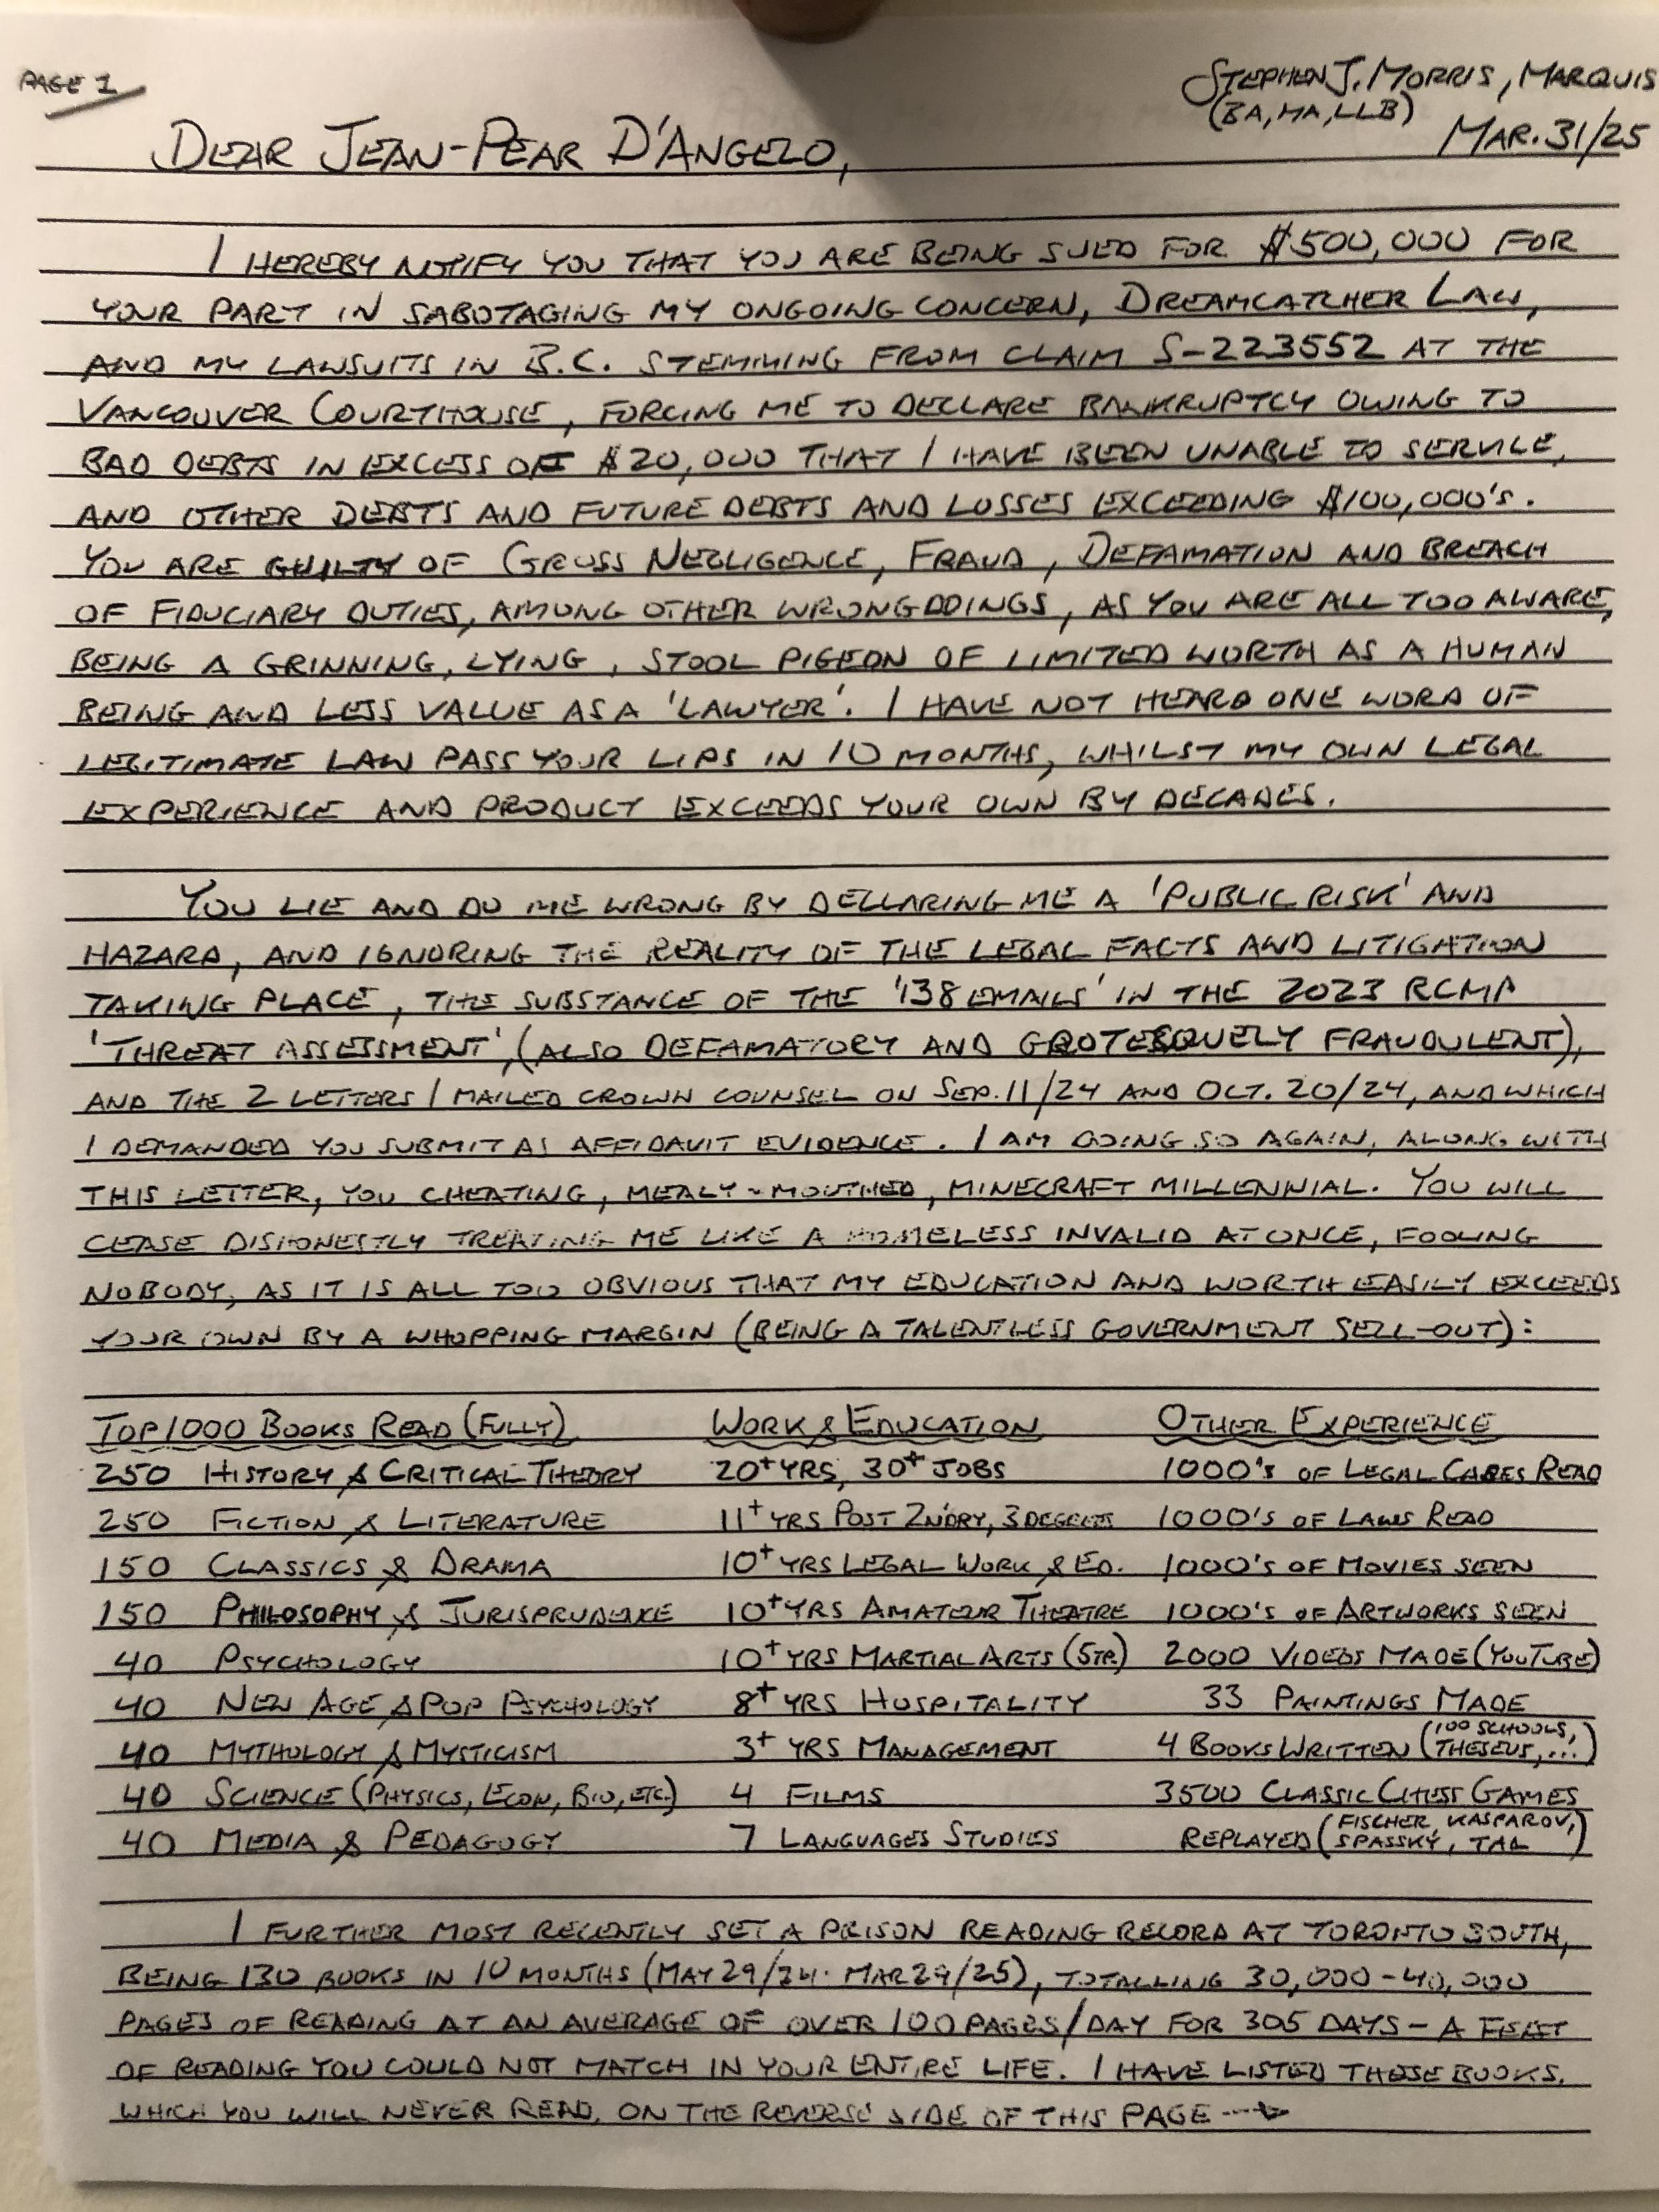 PAGE 1
STEPHEN J. MORRIS, MARQUIS
(BA, MA, LLB)
MAR. 31/25
DEAR JEAN-PEAR D'ANGELO,
I HEREBY NOTIFY YOU THAT YOU ARE BEING SUED FOR $500,000 FOR
YOUR PART IN SABOTAGING MY ONGOING CONCERN, DREAMCATCHER LAW,
AND MY LAWSUITS IN B.C. STEMMING FROM CLAIM S-223552 AT THE
VANCOUVER COURTHOUSE, FORCING ME TO DECLARE BANKRUPTCY OWING TO
BAD DEBTS IN EXCESS OF $20,000 THAT I HAVE BEEN UNABLE TO SERVICE,
AND OTHER DEBTS AND FUTURE DEBTS AND LOSSES EXCEEDING $100,000'S.
YOU ARE GUILTY OF GROSS NEGLIGENCE, FRAUD, DEFAMATION AND BREACH
OF FIDUCIARY DUTIES, AMONG OTHER WRONGDOINGS, AS YOU ARE ALL TOO AWARE,
BEING A GRINNING, LYING, STOOL PIGEON OF LIMITED WORTH AS A HUMAN
BEING AND LESS VALUE AS A 'LAWYER'. I HAVE NOT HEARD ONE WORD OF
LEGITIMATE LAW PASS YOUR LIPS IN 10 MONTHS, WHILST MY OWN LEGAL
EXPERIENCE AND PRODUCT EXCEEDS YOUR OWN BY DECADES.
YOU LIE AND DO ME WRONG BY DECLARING ME A 'PUBLIC RISK' AND
HAZARD, AND IGNORING THE REALITY OF THE LEGAL FACTS AND LITIGATION
TAKING PLACE, THE SUBSTANCE OF THE '138 EMAILS' IN THE 2023 RCMP
'THREAT ASSESSMENT', (ALSO DEFAMATORY AND GROTESQUELY FRAUDULENT),
AND THE 2 LETTERS I MAILED CROWN COUNSEL ON SEP. 11/24 AND OCT. 20/24, AND WHICH
I DEMANDED YOU SUBMIT AS AFFIDAVIT EVIDENCE. I AM DOING SO AGAIN, ALONG WITH
THIS LETTER, YOU CHEATING, MEALY-MOUTHED, MINECRAFT MILLENNIAL. YOU WILL
CEASE DISHONESTLY TREATING ME LIKE A HOMELESS INVALID AT ONCE, FOOLING
NOBODY, AS IT IS ALL TOO OBVIOUS THAT MY EDUCATION AND WORTH EASILY EXCEEDS
YOUR OWN BY A WHOPPING MARGIN (BEING A TALENTLESS GOVERNMENT SELL-OUT):
TOP 1000 BOOKS READ (FULLY) WORK & EDUCATION OTHER EXPERIENCE
250 HISTORY & CRITICAL THEORY 20+ YRS, 30+ JOBS 1000'S OF LEGAL CASES READ
250 FICTION & LITERATURE 11+ YRS POST 2N'DRY, 3 DEGREES 1000'S OF LAWS READ
150 CLASSICS & DRAMA 10+ YRS LEGAL WORK & ED. 1000'S OF MOVIES SEEN
150 PHILOSOPHY & JURISPRUDENCE 10+ YRS AMATEUR THEATRE 1000'S OF ARTWORKS SEEN
40 PSYCHOLOGY 10+ YRS MARTIAL ARTS (5TR.) 2000 VIDEOS MADE (YOUTUBE)
40 NEW AGE & POP PSYCHOLOGY 8+ YRS HOSPITALITY 33 PAINTINGS MADE
40 MYTHOLOGY & MYSTICISM 3+ YRS MANAGEMENT 4 BOOKS WRITTEN (100 SCHOOLS, THESEUS, ...)
40 SCIENCE (PHYSICS, ECON, BIO, ETC.) 4 FILMS 3500 CLASSIC CHESS GAMES
40 MEDIA & PEDAGOGY 7 LANGUAGES STUDIES REPLAYED (FISCHER, KASPAROV, SPASSKY, TAL)
I FURTHER MOST RECENTLY SET A PRISON READING RECORD AT TORONTO SOUTH,
BEING 130 BOOKS IN 10 MONTHS (MAY 29/24 - MAR 29/25), TOTALLING 30,000-40,000
PAGES OF READING AT AN AVERAGE OF OVER 100 PAGES/DAY FOR 305 DAYS - A FEAT
OF READING YOU COULD NOT MATCH IN YOUR ENTIRE LIFE. I HAVE LISTED THESE BOOKS,
WHICH YOU WILL NEVER READ, ON THE REVERSE SIDE OF THIS PAGE -->